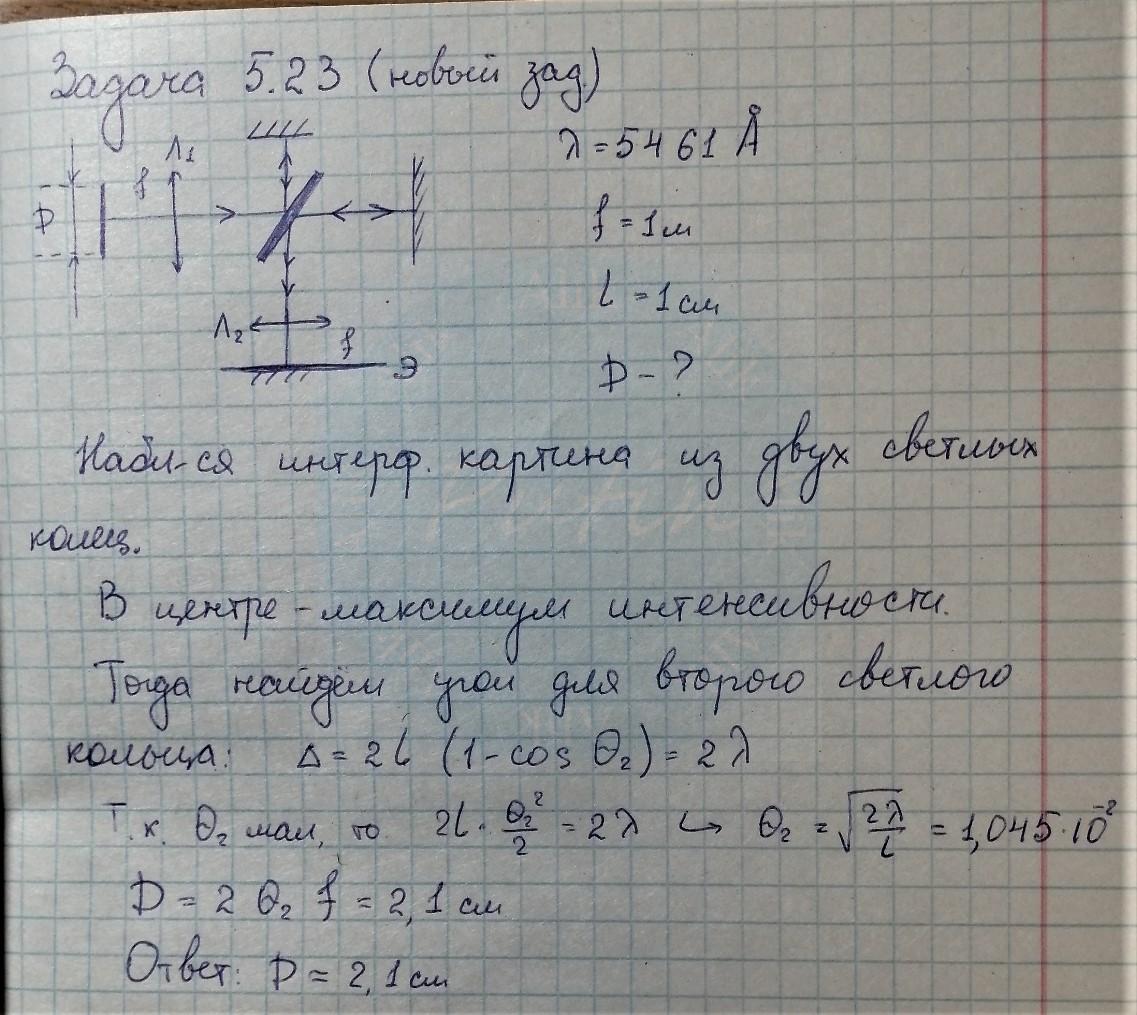 Задача 5.23 (новый зад.)
λ = 5461 Å
Л1
f
D
f = 1 м
l = 1 см
Л2
f
Э
D - ?
Набл-ся интерф. картина из двух светлых
колец.
В центре - максимум интенсивности.
Тогда найдём угол для второго светлого
кольца: Δ = 2l (1 - cos θ₂) = 2λ
Т.к. θ₂ мал, то 2l · θ₂²/2 = 2λ ↪ θ₂ = √(2λ/l) = 1,045 · 10⁻²
D = 2 θ₂ f = 2,1 см
Ответ: D = 2,1 см